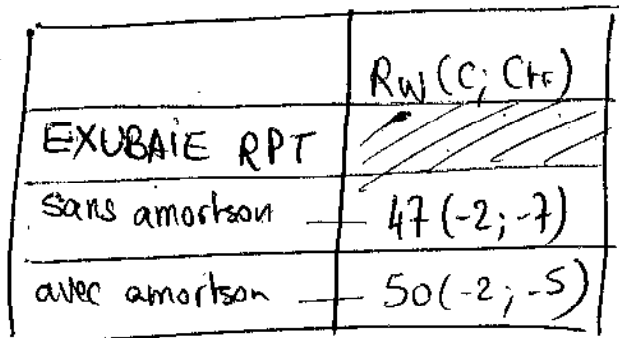 Rw (C; Ctr)
EXUBAIE RPT
sans amortson — 47 (-2; -7)
avec amortson — 50 (-2; -5)